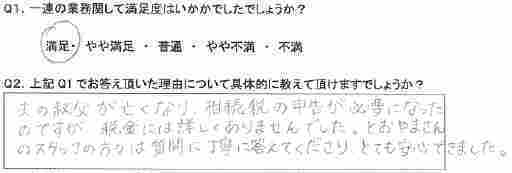 Q1. 一連の業務関して満足度はいかかでしたでしょうか？
満足・ やや満足 ・ 普通 ・ やや不満 ・ 不満
Q2. 上記Q1でお答え頂いた理由について具体的に教えて頂けますでしょうか？
夫の叔父が亡くなり、相続税の申告が必要になった
のですが、税金には詳しくありませんでした。とおやまさん
のスタッフの方々は質問に丁寧に答えてくださり、とても安心できました。